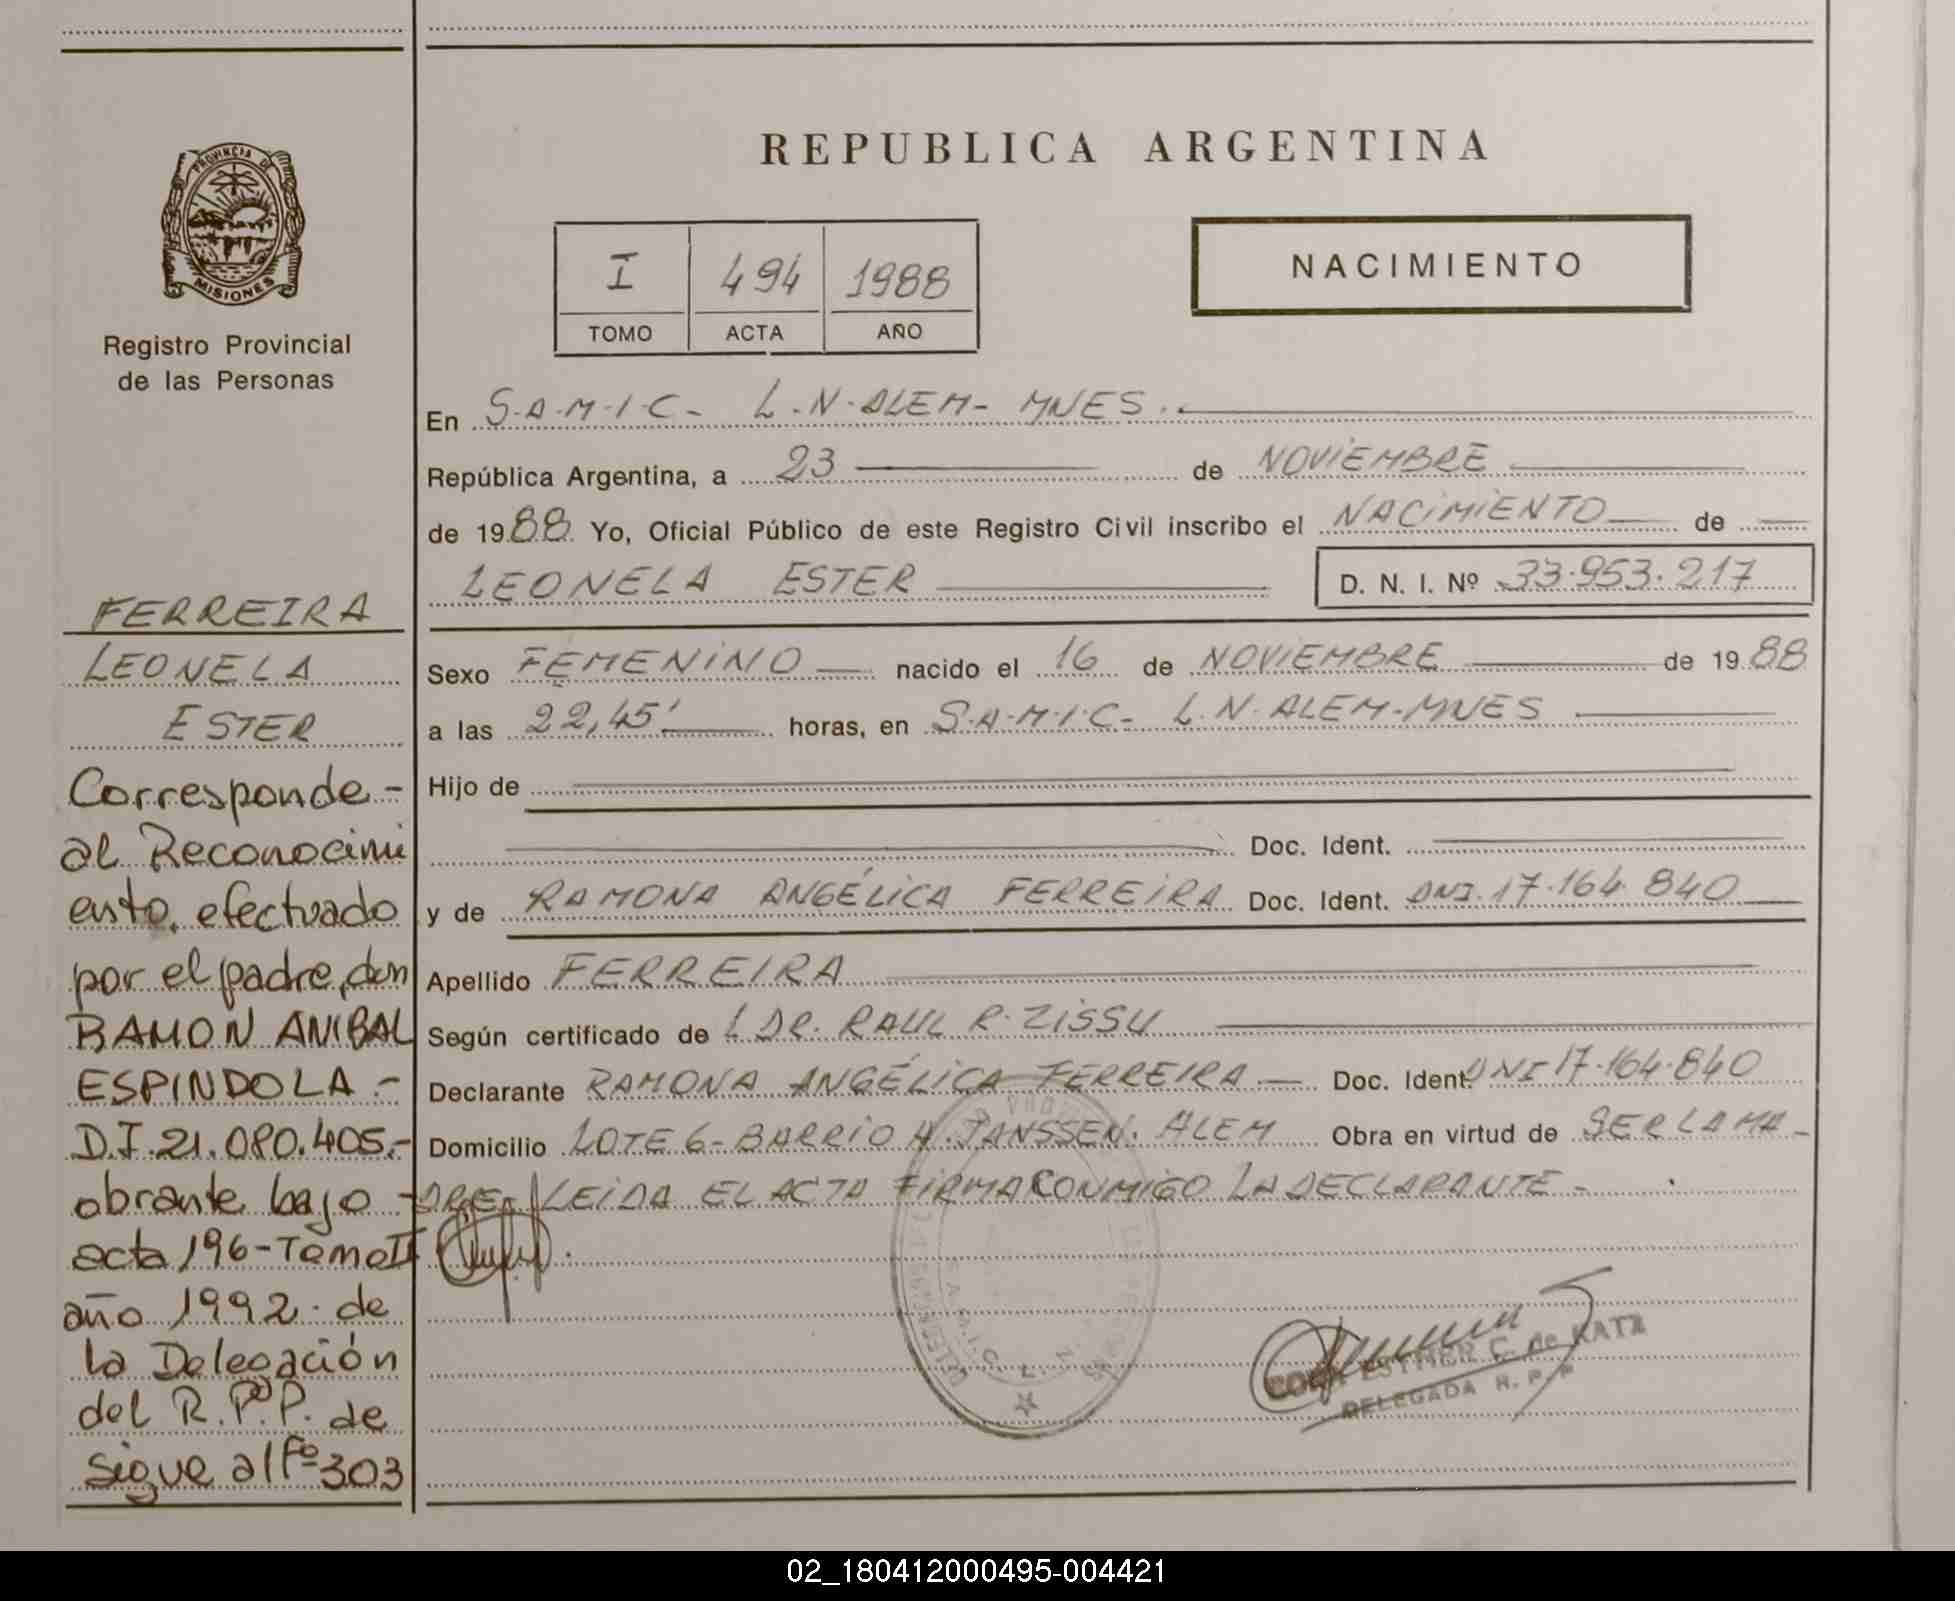 PROVINCIA DE
MISIONES
Registro Provincial
de las Personas
FERREIRA
LEONELA
ESTER
Corresponde-
al Reconocimi
ento, efectuado
por el padre, don
RAMON ANIBAL
ESPINDOLA.-
D.I.21.080.405.-
obrante bajo -
acta 196-Tomo II
año 1992. de
la Delegación
del R.P.P. de
sigue al Fº 303
REPUBLICA ARGENTINA
I 494 1988
TOMO ACTA AÑO
NACIMIENTO
En S.A.M.I.C.- L.N.ALEM- MNES.
República Argentina, a 23 de NOVIEMBRE
de 1988 Yo, Oficial Público de este Registro Civil inscribo el NACIMIENTO de
LEONELA ESTER D. N. I. Nº 33.953.217
Sexo FEMENINO nacido el 16 de NOVIEMBRE de 1988
a las 22,45' horas, en S.A.M.I.C.- L.N.ALEM-MNES
Hijo de
Doc. Ident.
y de RAMONA ANGÉLICA FERREIRA Doc. Ident. DNI.17.164.840
Apellido FERREIRA
Según certificado de DR. RAUL R. ZISSU
Declarante RAMONA ANGÉLICA FERREIRA Doc. Ident. DNI 17.164.840
Domicilio LOTE 6-BARRIO H. JANSSEN. ALEM Obra en virtud de SER LA MA-
DRE. LEIDA EL ACTA FIRMA CONMIGO LA DECLARANTE-
ESTHER C. de KATZ
DELEGADA R. P. P
02_180412000495-004421